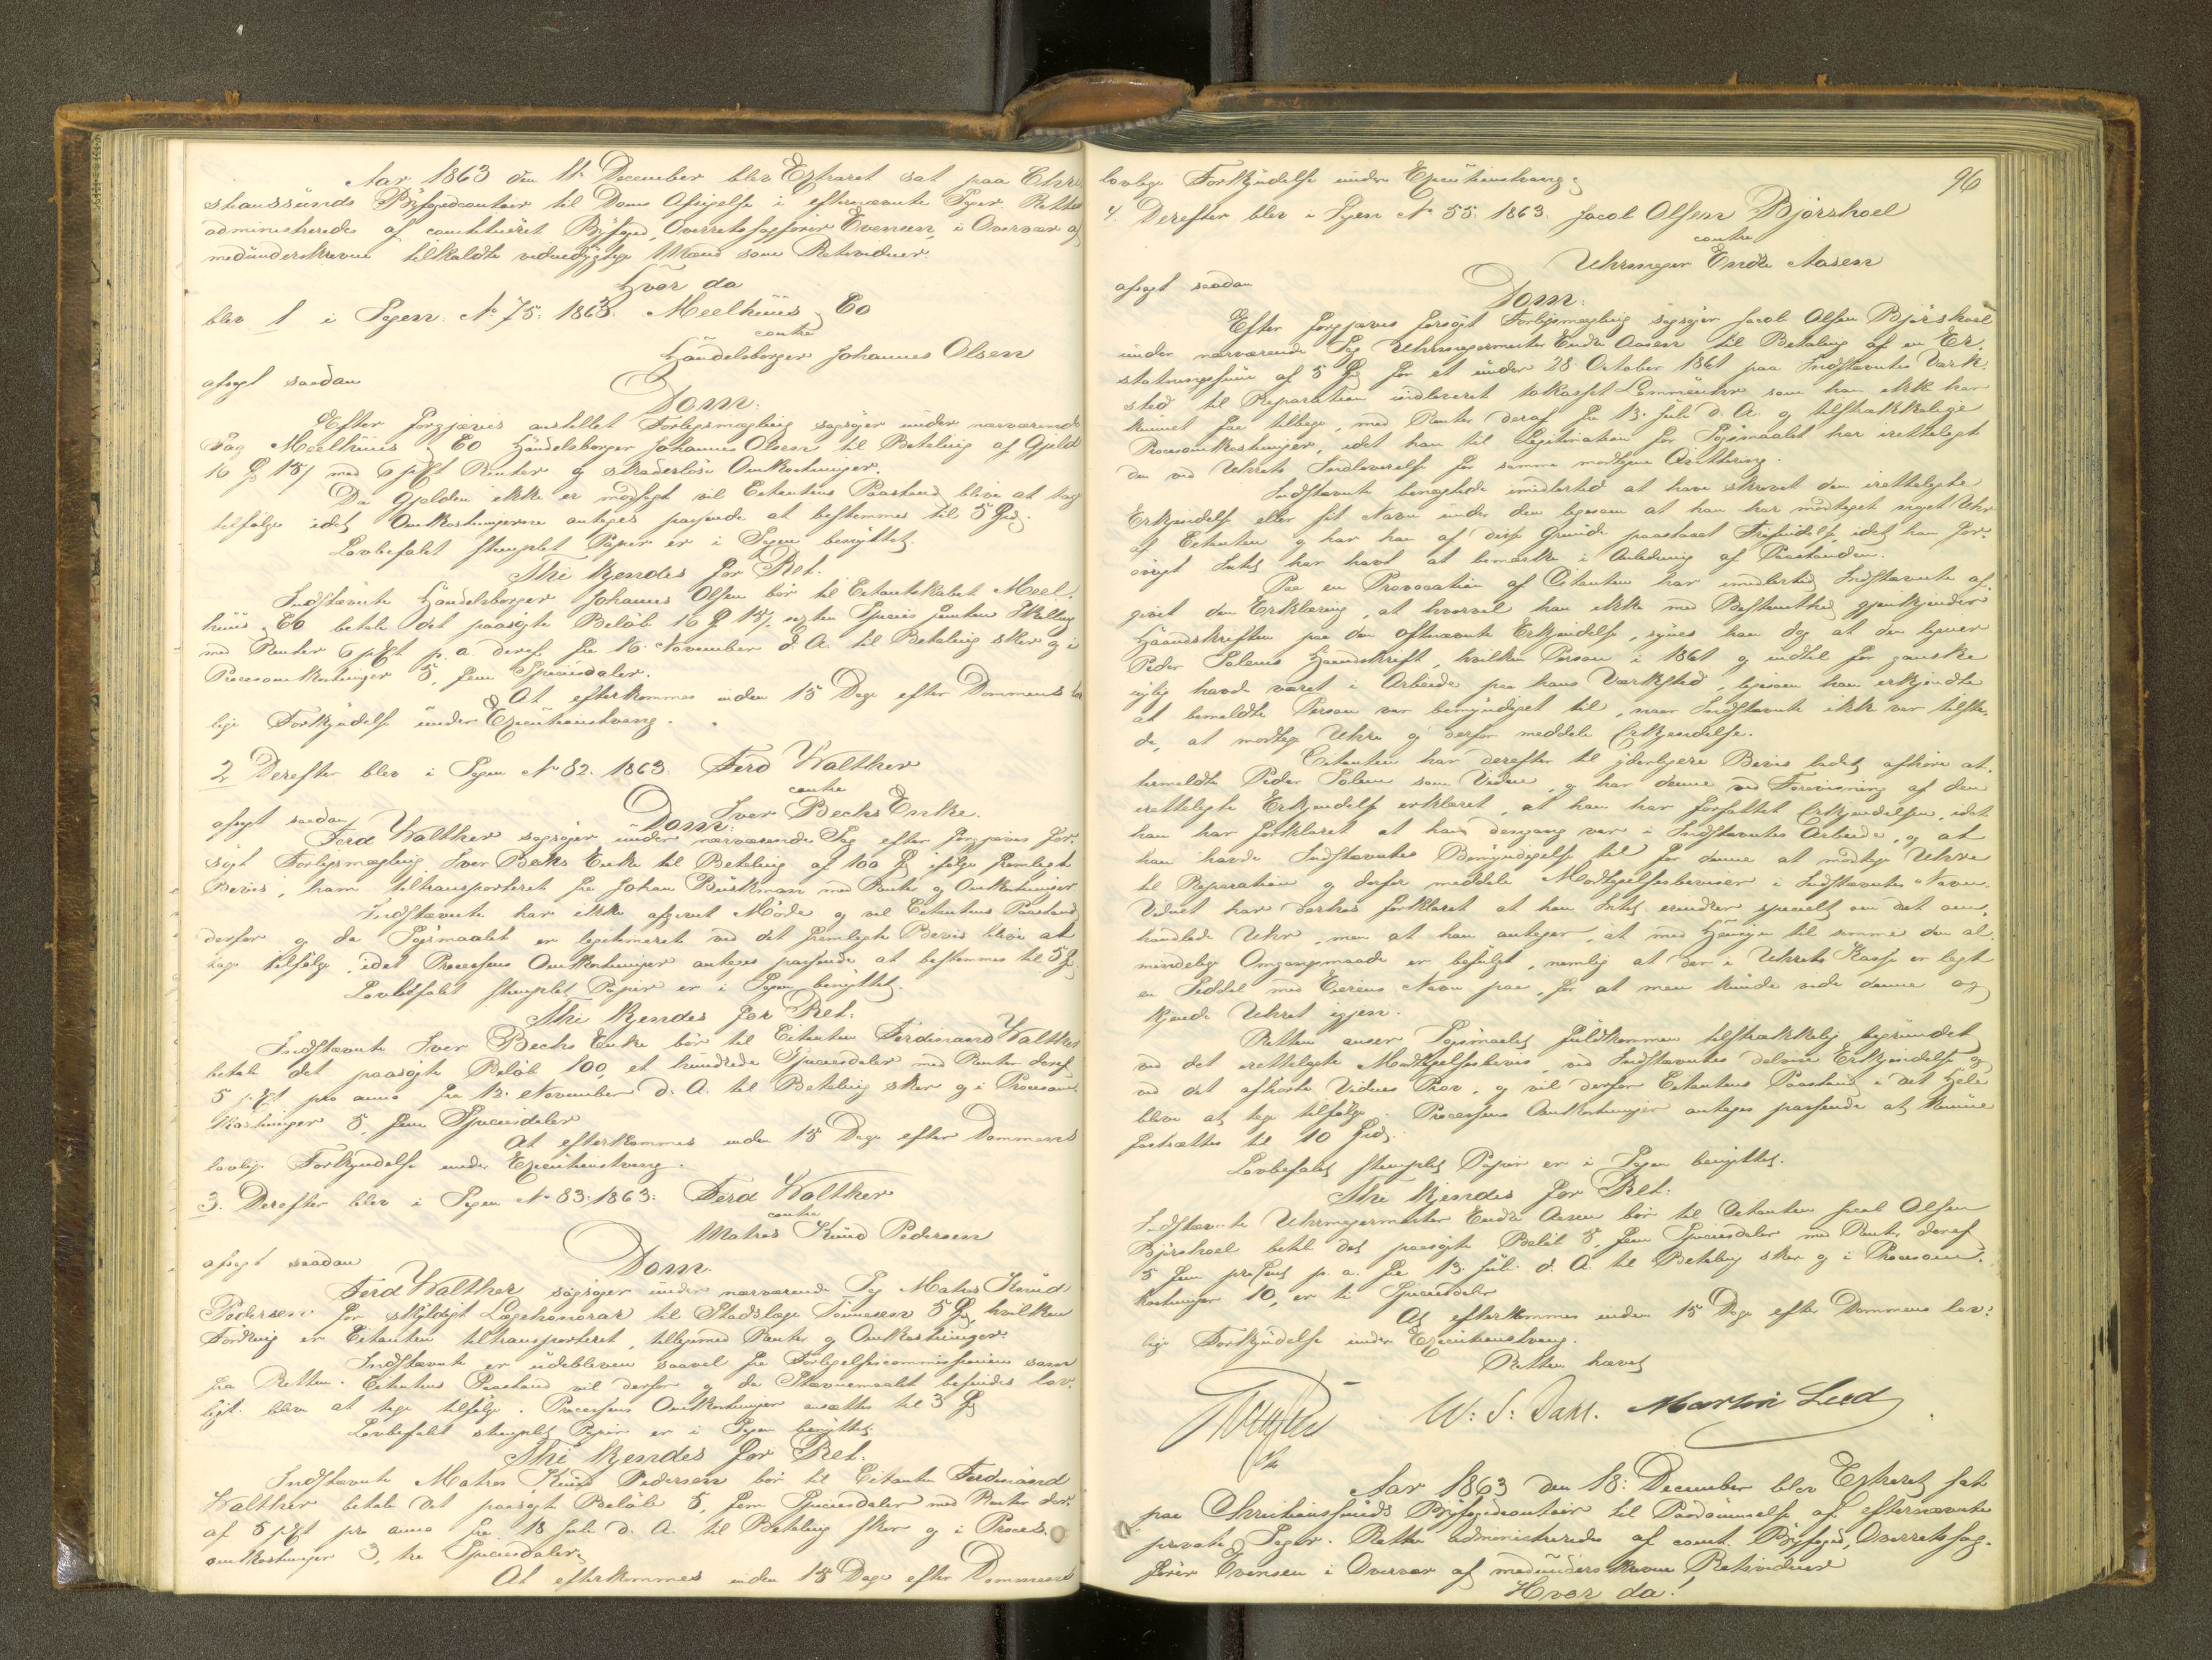 Aar 1863 den 11. December blev Extraret sat paa Chri-
stianssunds Byfogedcontoir til Doms Afsigelse i efternævnte Sager. Retten
administreredes af constitueret Byfoged, Overretssagfører Evensen, i Overvær af
medunderskrevne tilkaldte vederhæftige Mænd som Retsvidner
Hvor da
blev 1 i Sagen No 75. 1863. Meelhuus & Co
contra
Handelsborger Johannes Olsen
afsagt saadan
Dom:
Efter forgjæves anstillet Forligsmægling sagsøger under nærværende
Sag Meelhuus & Co Handelsborger Johannes Olsen til Betaling af Gjeld
16 Spd 15 ß med 6 pCt Renter og skadesløse Omkostninger.
Da Gjelden ikke er modsagt vil Citantens Paastand blive at tage
tilfølge idet Omkostningerne antages passende at bestemmes til 5 Spd.
Lovbefalet stemplet Papir er i Sagen benyttet.
Thi kjendes for Ret.
Indstævnte Handelsborger Johannes Olsen bør til Citantskabet Meel-
huus & Co betale det paasøgte Beløb 16 Spd 15 ß, sexten Species femten Skilling
med Renter 6 pCt p. a. deraf fra 16. November d. A. til Betaling sker og i
Procesomkostninger 5, fem Speciesdaler.
At efterkommes inden 15 Dage efter Dommens lov-
lige Forkyndelse under Executionstvang.
2 Derefter blev i Sagen No 82. 1863. Ferd Walther
contra
Iver Bechs Enke.
afsagt saadan
Dom:
Ferd Walther sagsøger under nærværende Sag efter forgjæves for-
søgt Forligsmægling Iver Beks Enke til Betaling af 100 Spd ifølge fremlagte
Beviis, ham tiltransporteret fra Johan Buskman med Renter og Omkostninger.
Indstævnte har ikke afgivet Møde og vil Citantens Paastand
derfor og da Søgsmaalet er legitimeret ved det fremlagte Bevis blive at
tage tilfølge, idet Processens Omkostninger antages passende at bestemmes til 5 Spd.
Lovbefalet stemplet Papir er i Sagen benyttet.
Thi kjendes for Ret:
Indstævnte Iver Bechs Enke bør til Citanten Ferdinand Walther
betale det paasøgte Beløb 100, et hundrede Speciesdaler med Renter deraf
5 pCt pro anno fra 13. November d. A. til Betaling sker og i Procesom-
kostninger 5, fem Speciesdaler
At efterkommes inden 15 Dage efter Dommens
lovlige Forkyndelse under Executionstvang.
3. Derefter blev i Sagen No 83. 1863: Ferd Walther
contra
Matros Knud Pedersen
afsagt saadan
Dom.
Ferd Walther sagsøger under nærværende Sag Matros Knud
Pedersen for skyldigt Lægehonorar til Stadslæge 5 Spd, hvilken
Fordring er Citanten tiltransporteret, tilligemed Renter og Omkostninger.
Indstævnte er udebleven saavel fra Forligelsescommissionen som
fra Retten. Citantens Paastand vil derfor og da Stævnemaalet befindes lov-
ligt blive at tage tilfølge. Processens Omkostninger ansættes til 3 Spd
Lovbefalet stemplet Papir er i Sagen benyttet.
Thi kjendes for Ret.
Indstævnte Matros Knud Pedersen bør til Citanten Ferdinand
Walther betale det paasøgte Beløb 5, fem Speciesdaler med Renter der-
af 5 pCt pro anno fra 18 Juli d. A. til Betaling sker og i Proces-
omkostninger 3, tre Speciesdaler.
At efterkommes inden 15 Dage efter Dommens
96
lovlige Forkyndelse under Executionstvang.
4. Derefter blev i Sagen No 55. 1863. Jacob Olsen Bjørshoel
contra
Uhrmager Endre Aasen
afsagt saadan
Dom:
Efter forgjæves forsøgt Forligsmægling sagsøger Jacob Olsen Bjørshoel
under nærværende Sag Uhrmagermester Endre Aasen til Betaling af en Er-
statningssum af 5 Spd for et under 28 October 1861 paa Indstævntes Værk-
sted til Reparation indleveret tokasset Lommeuhr som han ikke har
kunnet faae tilbage, med Renter deraf fra 13. Juli d. A. og tilstrækkelige
Procesomkostninger, idet han til Legitimation for Søgsmaalet har irettelagt
den ved Uhrets Indleverelse for samme modtagne Qvittering.
Indstævnte benægtede imidlertid at have skrevet den irettelagte
Erkjendelse eller sit Navn under den ligesom at han har modtaget noget Uhr
af Citanten og har han af disse Grunde paastaaet Frifindelse, idet han for-
øvrigt Intet har havt at bemærke i Anledning af Paastanden.
Paa en Provocation af Citanten har imidlertid Indstævnte af-
givet den Erklæring, at hvorvel han ikke med Bestemthed gjenkjender
Haandskriften paa den oftnævnte Erkjendelse, synes han dog at den ligner
Peder Solems Haandskrift, hvilken Person i 1861 og indtil for ganske
nylig havde været i Arbeide paa hans Værksted, ligesom han erkjendte
at bemeldte Person var bemyndiget til, naar Indstævnte ikke var tilste-
de, at modtage Uhre og derfor meddele Erkjendelse.
Citanten har derefter til yderligere Bevis ladet afhøre at-
termeldte Peder Solem som Vidne, og har denne ved Forevisning af den
irettelagte Erkjendelse erklæret, at han har forfattet Erkjendelsen, idet
han har forklaret at han dengang var i Indstævntes Arbeide, og at
han havde Indstævntes Bemyndigelse til for denne at modtage Uhre
til Reparation og derfor meddele Modtagelsesbeviser i Indstævntes Navn.
Vidnet har derhos forklaret at han Intet erindrer specielt om det om-
handlede Uhr, men at han antager, at med Hensyn til samme den al-
mindelige Omgangsmaade er befulgt, nemlig at der i Uhrets Kasse er lagt
en Seddel med Eierens Navn paa, for at man kunde vide denne og
kjende Uhret igjen.
Retten anser Søgsmaalet fuldkommen tilstrækkelig begrundet
ved det irettelagte Modtagelsesbevis, ved Indstævntes delvise Erkjendelse og
ved det afhørte Vidnes Prov, og vil derfor Citantens Paastand i det Hele
blive at tage tilfølge. Processens Omkostninger antages passende at kunne
fastsættes til 10 Spd.
Lovbefalet stemplet Papir er i Sagen benyttet.
Thi kjendes for Ret.
Indstævnte Uhrmagermester Endre Aasen bør til Citanten Jacob Olsen
Bjørshoel betale det paasøgte Beløb 5, fem Speciesdaler med Renter deraf
5 fem proCent p. a. fra 13. Juli d. A. til Betaling sker og i Procesom-
kostninger 10, er ti Speciesdaler
At efterkommes inden 15 Dage efter Dommens lov-
lige Forkyndelse under Executionstvang.
Retten hævet
W. S. Dahl. Martin Leed
Aar 1863 den 18: December blev Extraret sat
paa Christianssunds Byfogedcontoir til Paadømmelse af efternævnte
private Sager. Retten administreredes af const. Byfoged, Overretssag-
fører Evensen i Overvær af medunderskrevne Retsvidner
Hvor da!